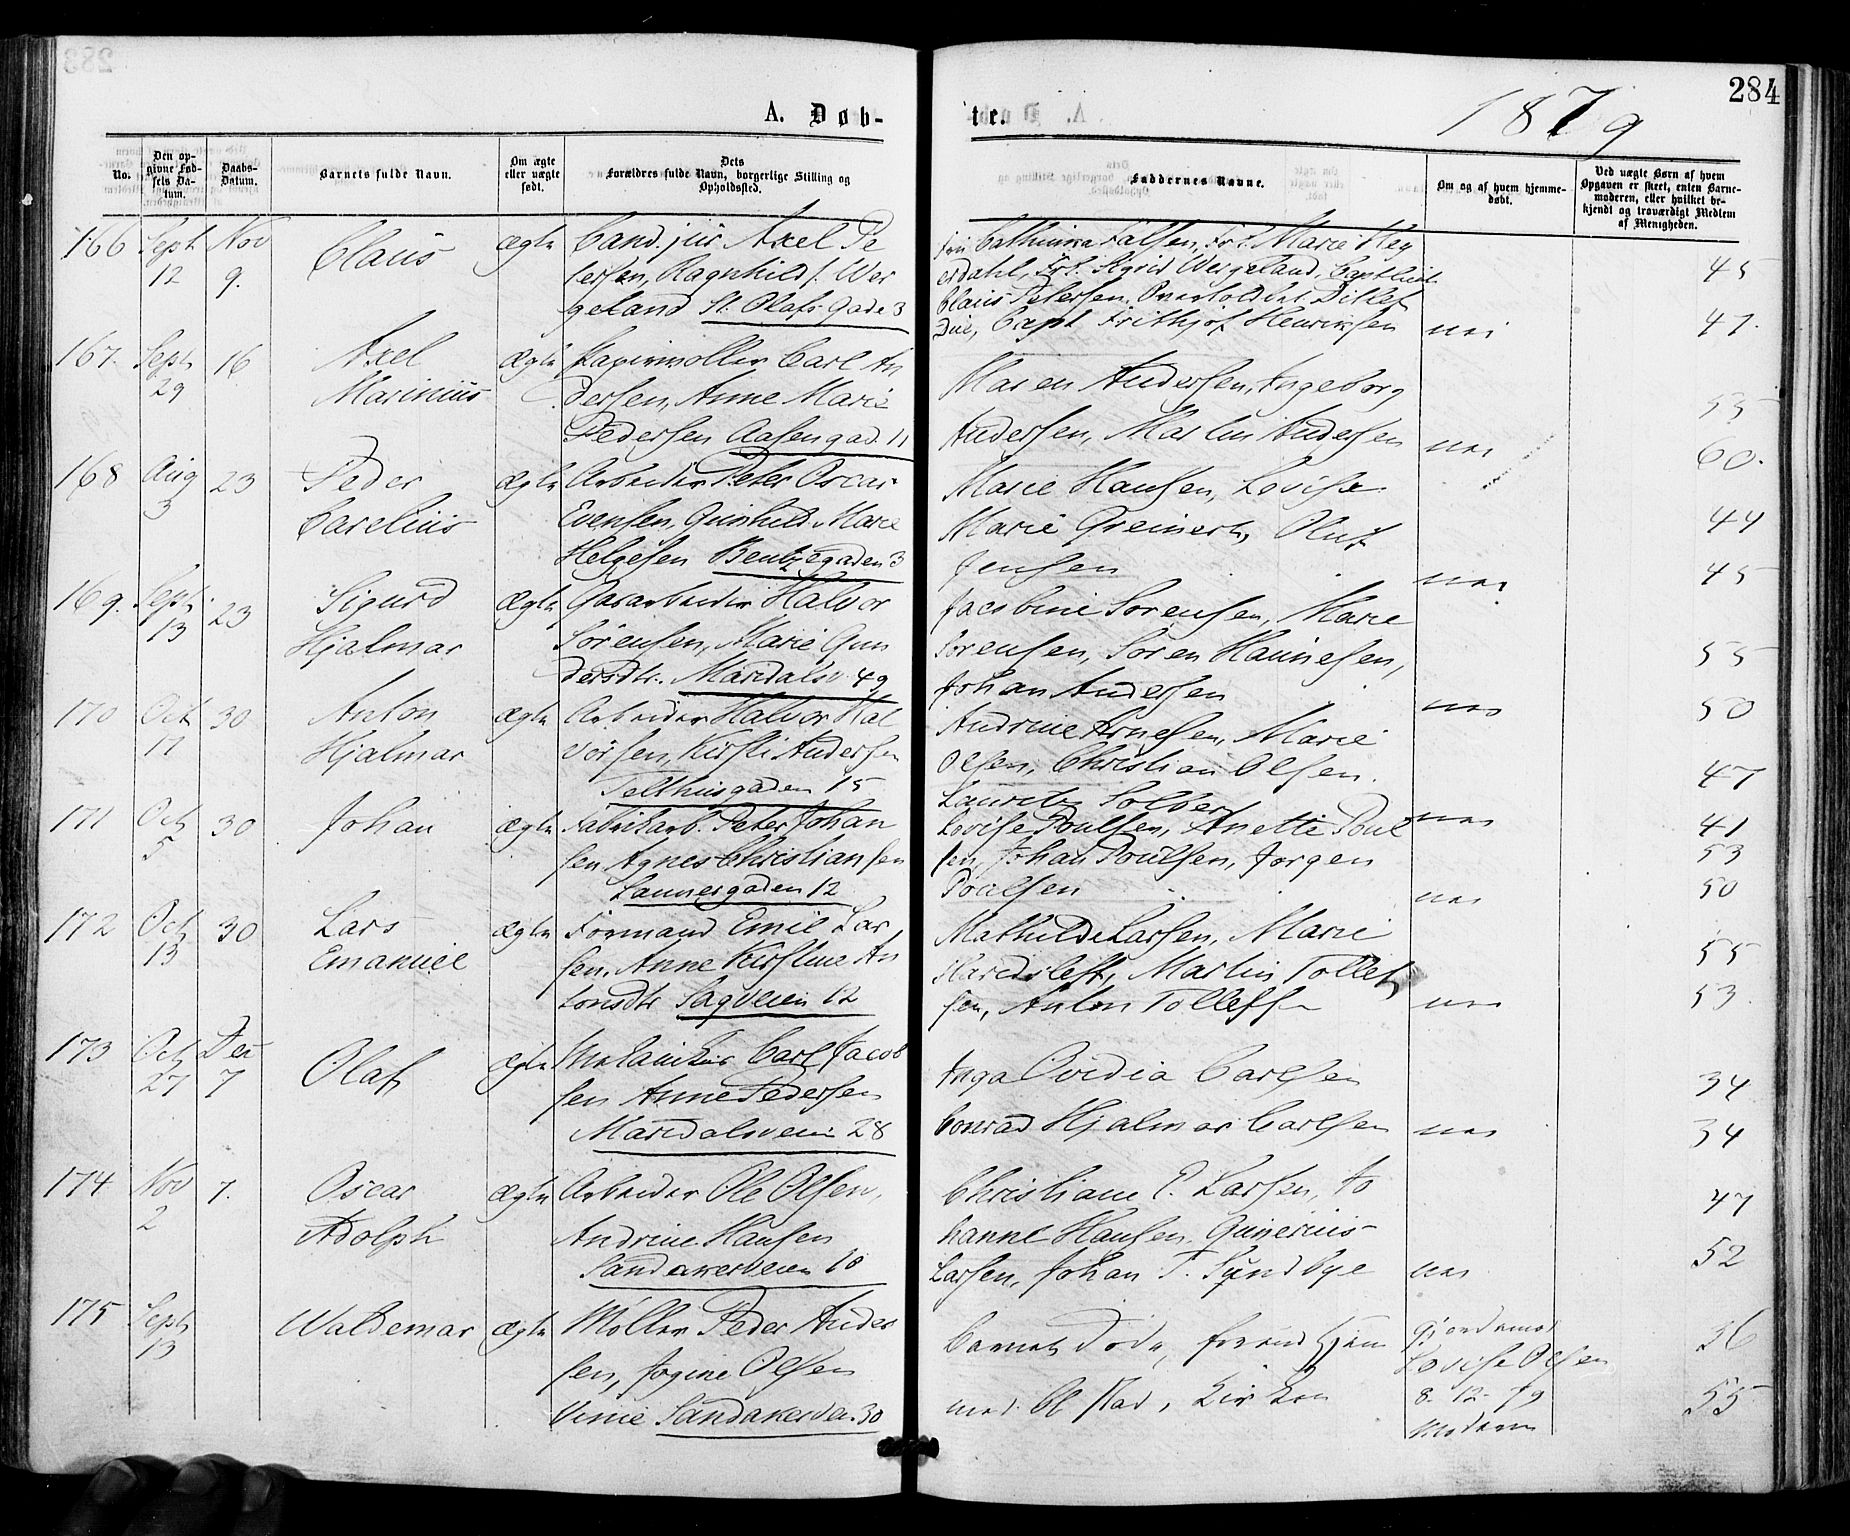 284
A. Døb-
te.
1879
No.
Den opgivne Fødsels Datum.
Daabs-Datum.
Barnets fulde Navn.
Om ægte eller uægte født.
Dets Forældres fulde Navn, borgerlige Stilling og Opholdssted.
Faddernes Navne.
Om og af hvem hjemmedøbt.
Ved uægte Børn af hvem Opgaven er skeet, enten Barnemoderen, eller hvilket bekjendt og troværdigt Medlem af Menigheden.
166 Sept 12 Nov 9. Claus ægte
Cand. jur Axel Pe
tersen, Ragnhild f. Wer
geland St. Olafs Gade 3
Cathinka Falsen, Frk. Marie Hey
erdahl, Frk. Sigrid Wergeland, Captleit
Claus Petersen, Ditlef
Due, Capt Frithjof Henriksen nei
45
47.
167. Sept 29 16 Axel Marinius ægte
Papirmøller Carl An
dersen, Anne Marie
Pedersen Aasengad. 11
Maren Andersen, Ingeborg
Andersen, Martin Andersen nei
55
60.
168 Aug 3 23 Peder Carelius ægte
Arbeider Peter Oscar
Evensen, Gunhild Marie
Helgesen Bentzegaden 3
Marie Hansen, Lovise
Marie Greinert, Oluf
Jensen nei
44
45
169. Sept. 13 23 Sigurd Hjalmar ægte
Gasarbeider Halvor
Sørensen, Marie Gun
dersdtr. Maridalsv. 49
Jacobine Sørensen, Marie
Sørensen, Søren Hannesen,
Johan Andersen nei
55
50
170 Oct 17 30 Anton Hjalmar ægte
Arbeider Halvor Hal
vorsen, Kirsti Andersen
Telthusgaden 15
Andrine Arnesen, Marie
Olsen, Christian Olsen.
Lauritz Solberg nei
47
41
171 Oct 5 30 Johan ægte
Fabrikarb. Peter Johan
sen, Agnes Christiansen
Sannergaden 12
Lovise Poulsen, Anette Poul
sen, Johan Poulsen, Jørgen
Poulsen nei
53
50
172 Oct 13 30 Lars Emanuel ægte
Formand Emil Lar
sen, Anne Kirstine An
tonsdtr Sagveien 12
Mathilde Larsen, Marie
Haredsleff, Martin Tollef
sen, Anton Tollefsen nei
55
53.
173 Oct 27 Dec 7 Olaf ægte
Mekaniker Carl Jacob
sen Anne Pedersen
Maridalsveien 28
Inga Ovidia Carlsen
Conrad Hjalmar Carlsen nei
34
34
174 Nov 2 7. Oscar Adolph ægte
Arbeider Ole Olsen,
Andrine Hansen
Sandakerveien 10
Christiane E. Larsen, Jo
hanne Hansen, Gunerius
Larsen, Johan T. Sundbye nei
47
52
175 Sept 13 Waldemar ægte
Møller Peder Ander
sen, Jogine Olsen
Vinie Sandakervei. 30
Barnet døde, forend
med til Stad, Kirken
Gjordemor
Lovise Olsen
8-12-79
Moderen
36
55